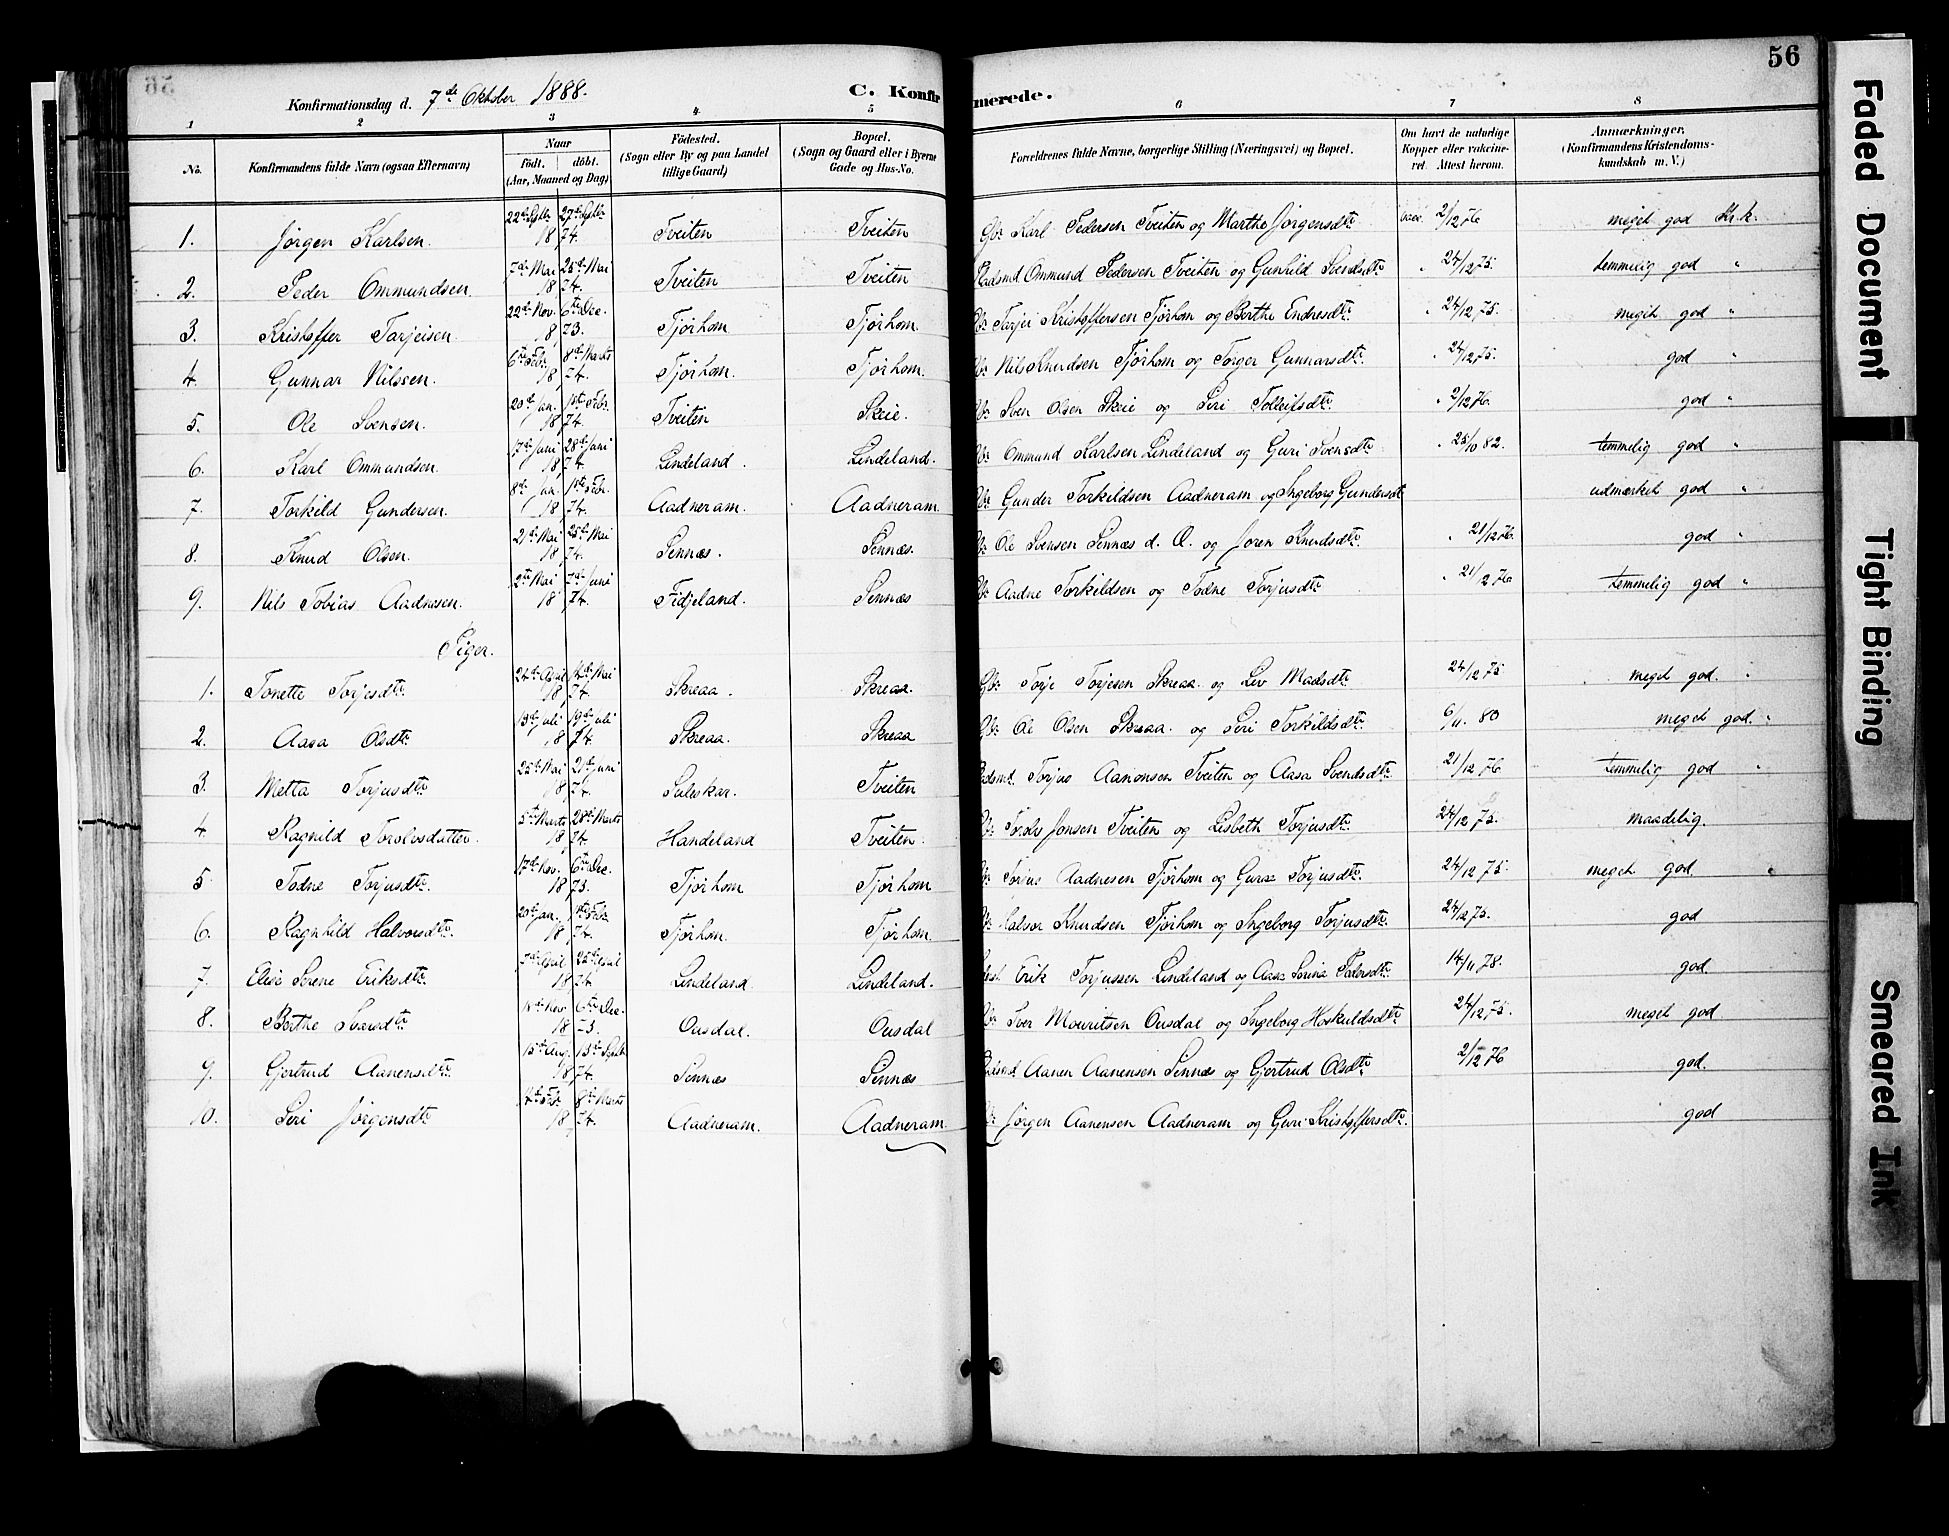 56
Konfirmationsdag d. 7de Oktober 1888. C. Konfirmerede.
1 2 3 4 5 6 7 8
No. Konfirmandens fulde Navn (ogsaa Efternavn) Naar født. døbt. (Aar, Maaned og Dag) Fødested. (Sogn eller By og paa Landet tillige Gaard) Bopæl. (Sogn og Gaard eller i Byerne Gade og Hus-No. Forældrenes fulde Navne, borgerlige Stilling (Næringsvei) og Bopæl. Om havt de naturlige Kopper eller vakcineret. Attest herom. Anmærkninger. (Konfirmandens Kristendomskundskab m. V.)
1. Jørgen Karlsen. 22de Septbr 27de Septbr 1874. Tveiten Tveiten Gbr. Karl Pedersen Tveiten og Marthe Jørgensdtr. vacc. 2/12 76 meget god Kr.k.
2. Peder Ommundsen. 7de Mai 25de Mai 1874. Tveiten Tveiten Pladsmd Ommund Pedersen Tveiten og Gunhild Svendsdtr " 24/12 75. temmelig god "
3. Kristoffer Tarjeisen. 22de Nov. 6te Dec. 1873. Tjørhom Tjørhom. Gbr. Tarjei Kristoffersen Tjørhom og Berthe Endresdtr. " 24/12 75. meget god "
4. Gunnar Nilssen. 6te Febr. 8de Marts 1874. Tjørhom. Tjørhom. Gbr. Nils Knudsen Tjørhom og Torger Gunnarsdtr. " 24/12 75. god "
5. Ole Svensen. 20de Jan. 1ste Febr. 1874. Tveiten Skeie. Gbr. Sven Olsen Skeie og Seri Tolleifsdtr. " 2/12 76. god "
6. Karl Ommundsen. 17de Juni 28de Juni 1874. Lindeland. Lindeland. Gbr. Ommund Karlsen Lindeland og Guri Svensdtr " 25/10 82. temmelig god "
7. Torkild Gundersen. 8de Jan. 1ste Febr. 1874. Aadneram. Aadneram. Gbr. Gunder Torkildsen Aadneram og Ingeborg Gundersdt udmærket god "
8. Knud Olsen. 21de Mai 25de Mai 1874. Sinnæs. Sinnæs. Gbr. Ole Svensen Sinnæs d. Æ. og Joren Knudsdtr. " 21/12 76. god "
9. Nils Tobias Aadnesen. 2den Mai 7de Juni 1874. Fidjeland. Sinnæs Gbr. Aadne Torkildsen og Todne Torjusdtr. " 21/12 76 temmelig god "
Piger.
1. Tonette Torjesdtr. 24de April 14de Mai 1874. Skreaa. Skreaa. Gbr. Torje Torjesen Skreaa. og Liv Madsdtr. 24/12 75 meget god. "
2. Aasa Olsdtr. 13de Juli 19de Juli 1874. Skreaa. Skreaa Gbr. Ole Olsen Skreaa. og Seri Torkildsdtr. 6/11. 80 meget god. "
3. Metta Torjusdtr. 25de Mai 21de Juni 1874. Suleskar. Tveiten Pladsmd. Torjus Aanonsen Tveiten og Aasa Svendsdtr. 21/12 76 temmelig god "
4 Ragnild Torolvsdatter. 5te Marts 28de Marts 1874. Handeland Tveiten. Gbr. Torolv Jonsen Tveiten og Lisbeth Torjusdtr. 24/12 75. maadelig.
5 Todne Torjusdtr. 17de Nov. 6te Dec. 1873. Tjørhom Tjørhom Gbr. Torjus Aadnesen Tjørhom og Guroe Torjusdtr. 24/12 75. meget god "
6. Ragnhild Halvorsdtr. 20de Jan. 1ste Febr. 1874. Tjørhom. Tjørhom. Gbr. Halvor Knudsen Tjørhom og Ingeborg Torjusdtr. 24/12 75. god
7. Elise Serene Eriksdtr. 7de April 25de April 1874. Lindeland Lindeland. Erik Torjussen Lindeland og Aasa Serina Pedersdtr. 14/11 78. god
8. Berthe Iversdtr 6te Dec. 1873. Ousdal. Ousdal Gbr. Iver Mouritsen Ousdal og Ingeborg Hoskuldsdtr 24/12 75. meget god
9. Gjertrud Aanensdtr. 15de Aug. 13de Septbr 1874. Sinnæs Sinnæs Pladsmd Aanen Aanensen Sinnæs og Gjertrud Olsdtr. 2/12 76 god.
10. Seri Jørgensdtr. Febr. 8de Marts 1874. Aadneram. Aadneram Gbr. Jørgen Aanensen Aadneram og Guri Kristoffersdtr. god
Faded Document
Tight Binding
Smeared Ink